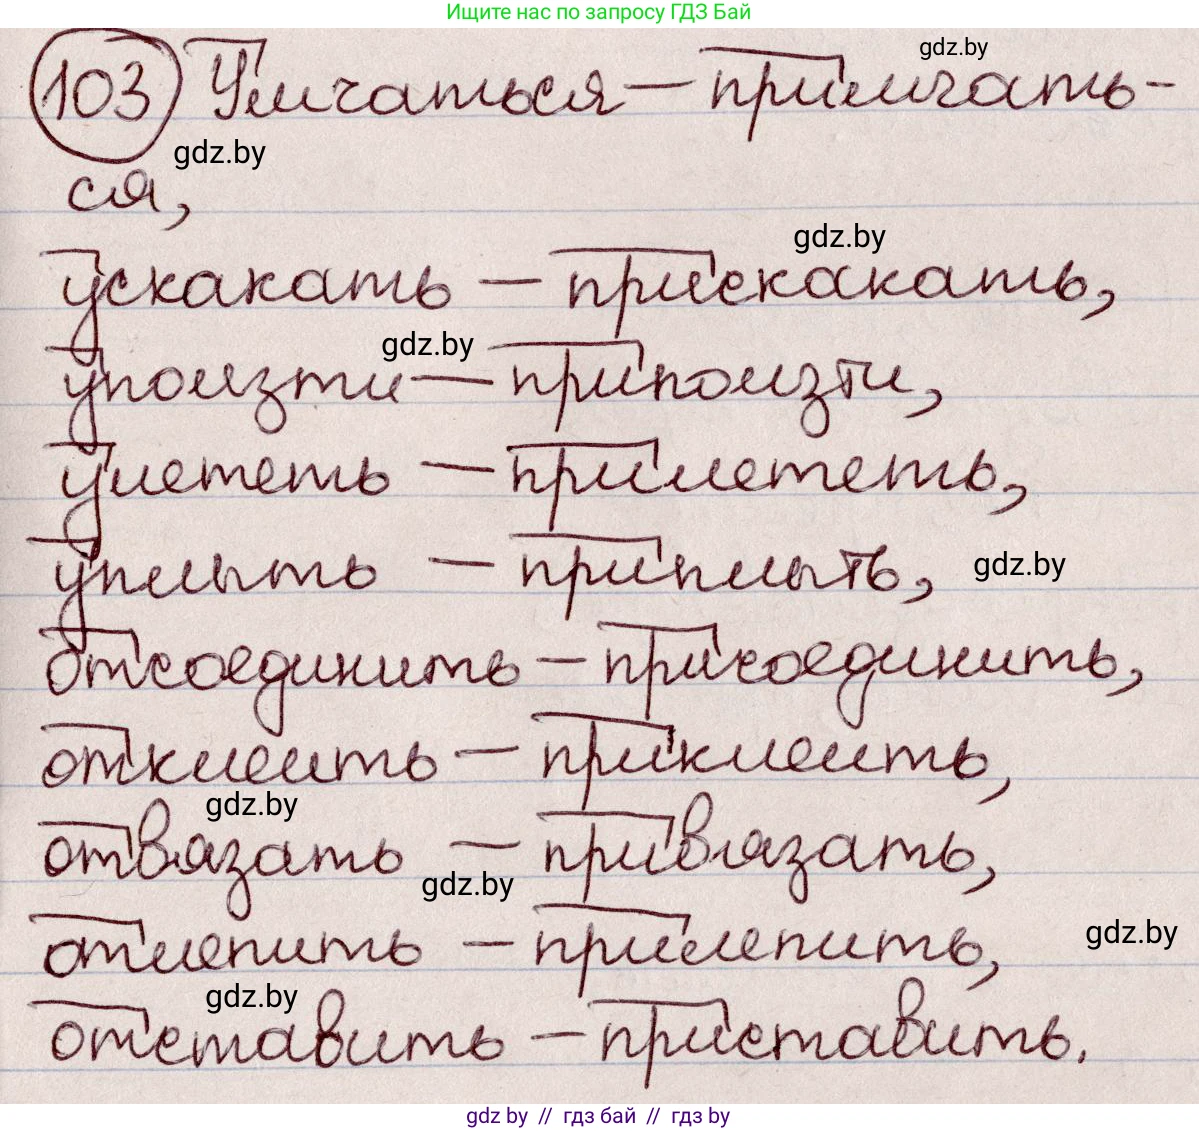 Ищите нас по запросу ГДЗ Бай
gdz.by
103 Умчаться — примчать-
gdz.by
ся,
gdz.by
ускакать — прискакать,
gdz.by
уползти — приползти,
улететь — прилететь,
уплыть — приплыть,
gdz.by
отсоединить — присоединить,
отклеить — приклеить,
gdz.by
отвязать — привязать,
gdz.by
отлепить — прилепить,
gdz.by
gdz.by
отставить — приставить.
gdz by // гдз бай // гдз by